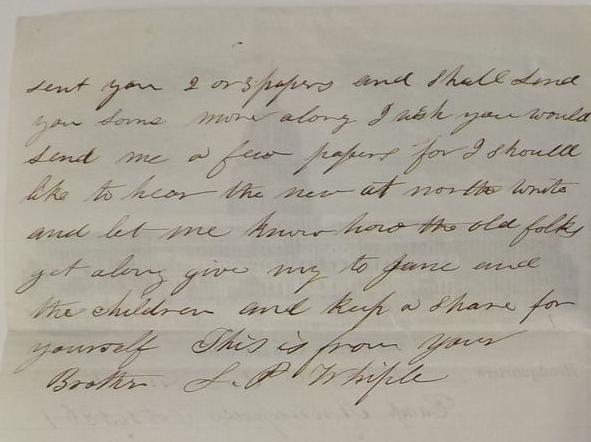 sent you 2 or 3 papers and shall send
you some more along I wish you would
send me a few papers for I should
like to hear the new at north write
and let me know how the old folks
get along give my to Jane and
the children and keep a share for
yourself This is from your
Brother L. P. Whiple